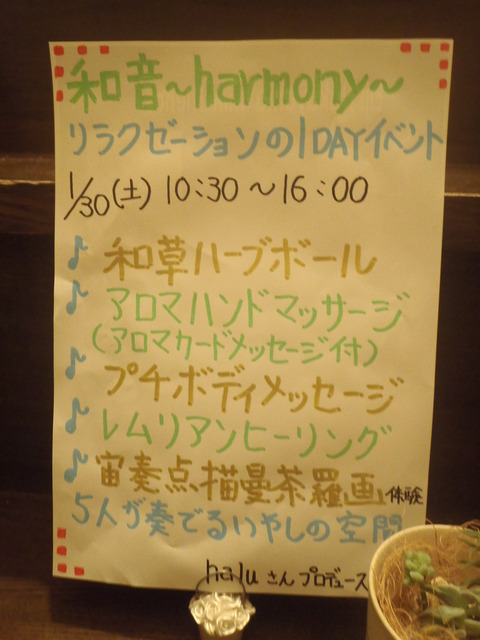 和音~harmony~
リラクゼーションの1DAYイベント
1/30(土) 10:30~16:00
♪ 和草ハーブボール
♪ アロマハンドマッサージ
(アロマカードメッセージ付)
♪ プチボディメッセージ
♪ レムリアンヒーリング
♪ 宙奏点描曼茶羅画体験
5人が奏でるいやしの空間
haluさんプロデュース